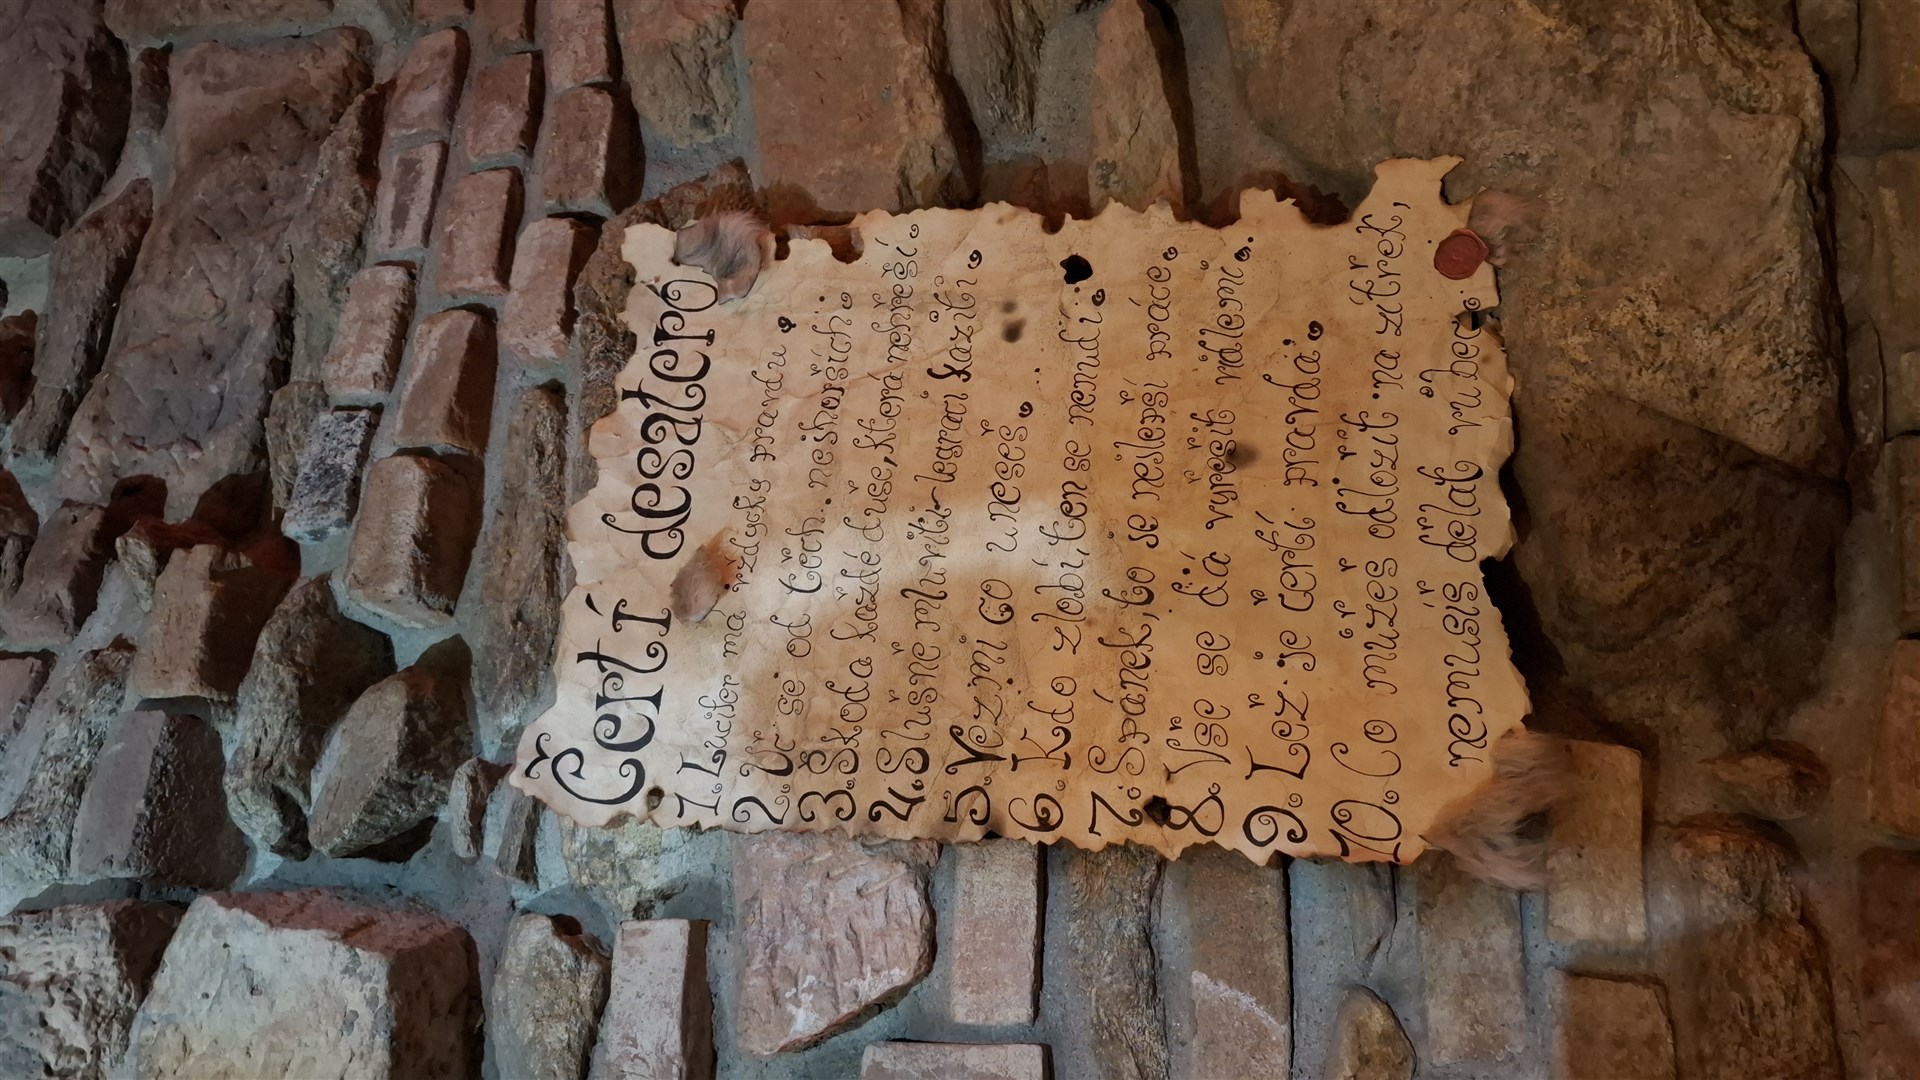 Čertí desatero
1. Lucifer má vždycky pravdu.
2. Uč se od těch nejhorších.
3. Škoda každé duše, která nehřeší.
4. Slušné mluviti legraci kazíti.
5. Vezmi co uneseš.
6. Kdo zlobí, ten se nenudí.
7. Spánek, to je nejlepší práce.
8. Vše se dá vyřešit nálemi.
9. Lež je čertí pravda.
10. Co můžeš odložit na zítřek,
nemusíš dělat vůbec.